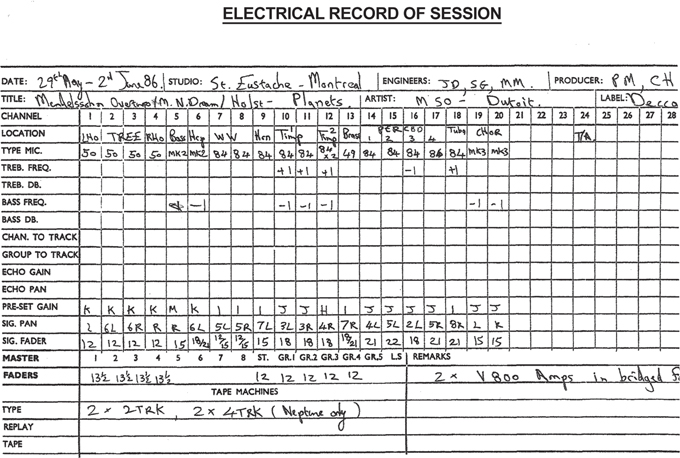 ELECTRICAL RECORD OF SESSION
DATE: 29th May - 2nd June 86. STUDIO: St. Eustache - Montreal ENGINEERS: JD, SG, MM. PRODUCER: PM, CH
TITLE: Mendelssohn Overtures/M. N. Dream/ Holst - Planets. ARTIST: MSO - Dutoit. LABEL: Decca
CHANNEL 1 2 3 4 5 6 7 8 9 10 11 12 13 14 15 16 17 18 19 20 21 22 23 24 25 26 27 28
LOCATION LHO TREE RHO Bass Hrp WW Hrn Timp 1 Timp 2 Brass PERC 1 2 3 4 Tuba CHOR T/A
TYPE MIC. 50 50 50 50 MK2 MK2 84 84 84 84 84 84 x2 49 84 84 84 86 84 MK3 MK3
TREB. FREQ. +1 +1 +1 -1 +1
TREB. DB.
BASS FREQ. -1 -1 -1 -1 -1 -1
BASS DB.
CHAN. TO TRACK
GROUP TO TRACK
ECHO GAIN
ECHO PAN
PRE-SET GAIN K K K K M K I I I J J H I J J J J I J J
SIG. PAN L 6L 6R R R 6L 5L 5R 7L 3L 3R 4R 7R 4L 5L 2L 5R 8R L R
SIG. FADER 12 12 12 12 15 18/21 12/15 12/15 15 18 18 18 18/21 21 22 18 21 21 15 15
MASTER 1 2 3 4 5 6 7 8 ST. GR.1 GR.2 GR.3 GR.4 GR.5 LS REMARKS
FADERS 13½ 13½ 13½ 13½ 12 12 12 12 12 2 x V800 Amps in bridged
TAPE MACHINES
TYPE 2 x 2TRK, 2 x 4TRK (Neptune only)
REPLAY
TAPE